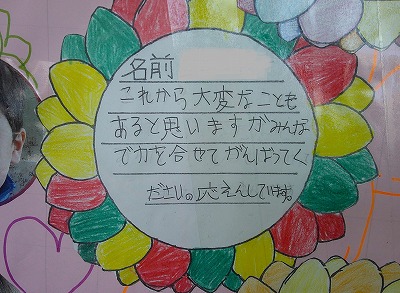 名前
これから大変なことも
あると思いますがみんな
で力を合せてがんばってく
ださい。応えんしています。